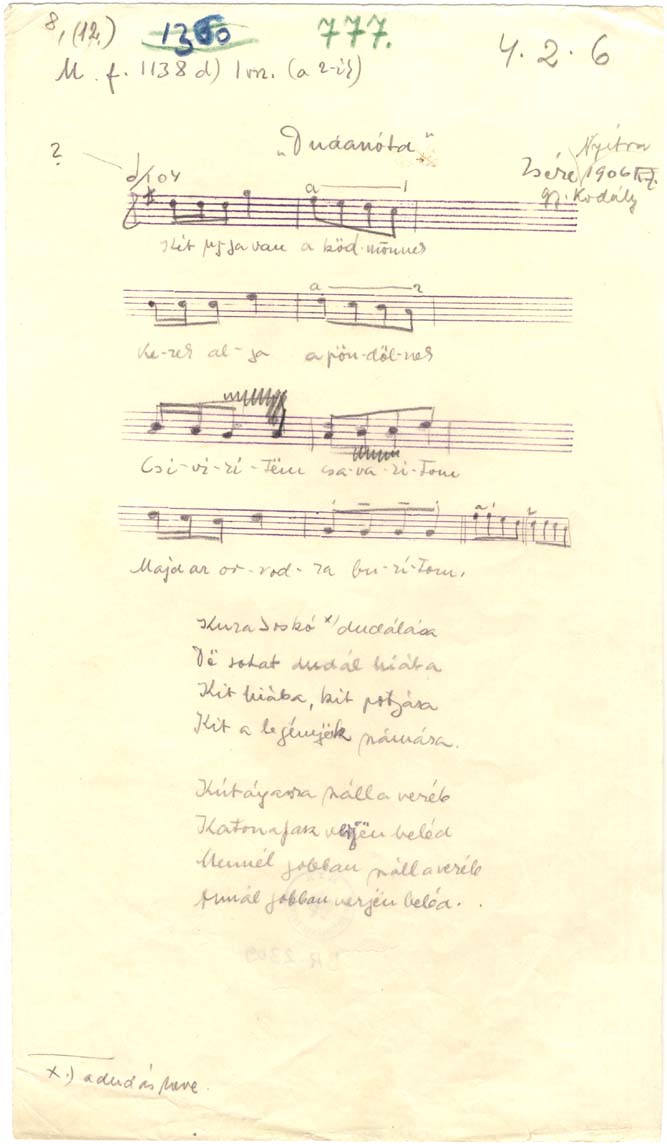 8, (12.) 1360 777. 4.2.6
M. f. 1138 d) 1 vsz. (a 2-ik)
„Dudanóta"
? Nyitra
Zsére, 1906
gy. Kodály
a 1
Két ujja van a ködmönnek
a 2
Ke-rek al-ja a pön-döl-nek
Csi-vi-ri-tëm csa-va-ri-tom
Majd az or-rod-ra bu-ri-tom.
Kuza Joskó x/ dudálása
Dë sokat dudál hiába
Kit hiába, kit potjára
Kit a legényëk számára.
Kútágasra száll a veréb
Katonafák verjën beléd
Mennél jobban száll a veréb
Annál jobban verjën beléd.
x.) a dudás neve.